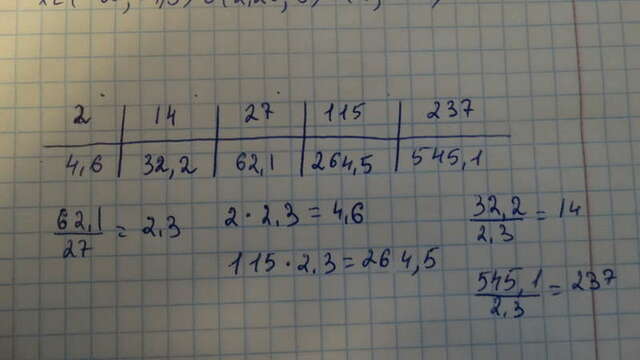 2 14 27 115 237
4,6 32,2 62,1 264,5 545,1
62,1/27 = 2,3 2·2,3=4,6 32,2/2,3=14
115·2,3=264,5
545,1/2,3=237